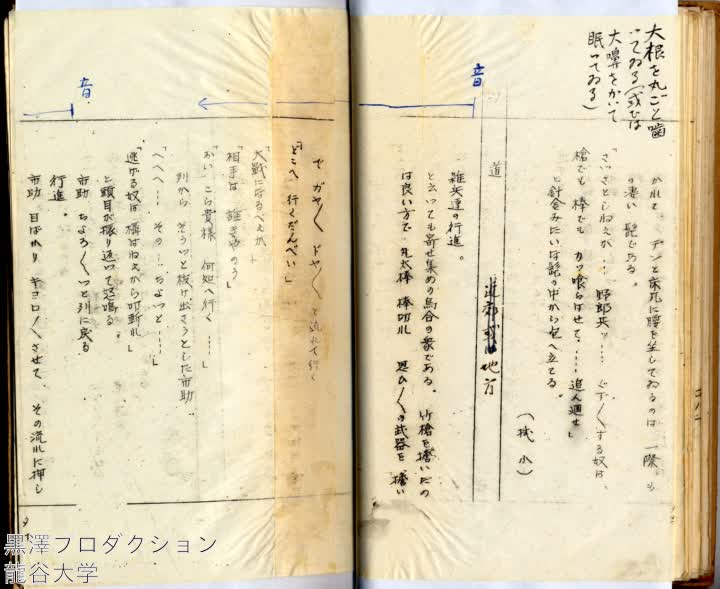 大根を丸ごと噛
ってゐる(或ひは
大嚊をかいて
眠ってゐる)
かれて デンと床几に腰を
の凄い髭である。
「さっさとしねえか…… 野郎共ッ…… ぐず〱する奴は
槍でも 棒でも カッ喰らはせて…… 追ん廻せ」
と針金みたいな髭の中から
(拭 小)
道
地方
雑兵達の行進。
と云っても寄せ集めの烏合の衆である。 竹槍を擔いだの
は良い方で 丸太棒 棒切れ 思ひ〱の武器を 擔い
音
で ガヤ〱 ドヤ〱 と流れて行く
「どこへ 行くだんべい」
「大戰になるべえか」
「相手は 誰ぎやのう」
「おい こら貴様 何処へ行く……」
列から そうッと抜け出さうとした市助
「へへへ…… その…… ちょっと……」
「逃げる奴は 構はねえから叩斬れ」
と頭目が振り返って怒鳴る。
市助 ちょろ〱っと列に戻る
行進。
市助 目ばかり キョロ〱させて、 その流れに押し
音
黒澤プロダクション
龍谷大学